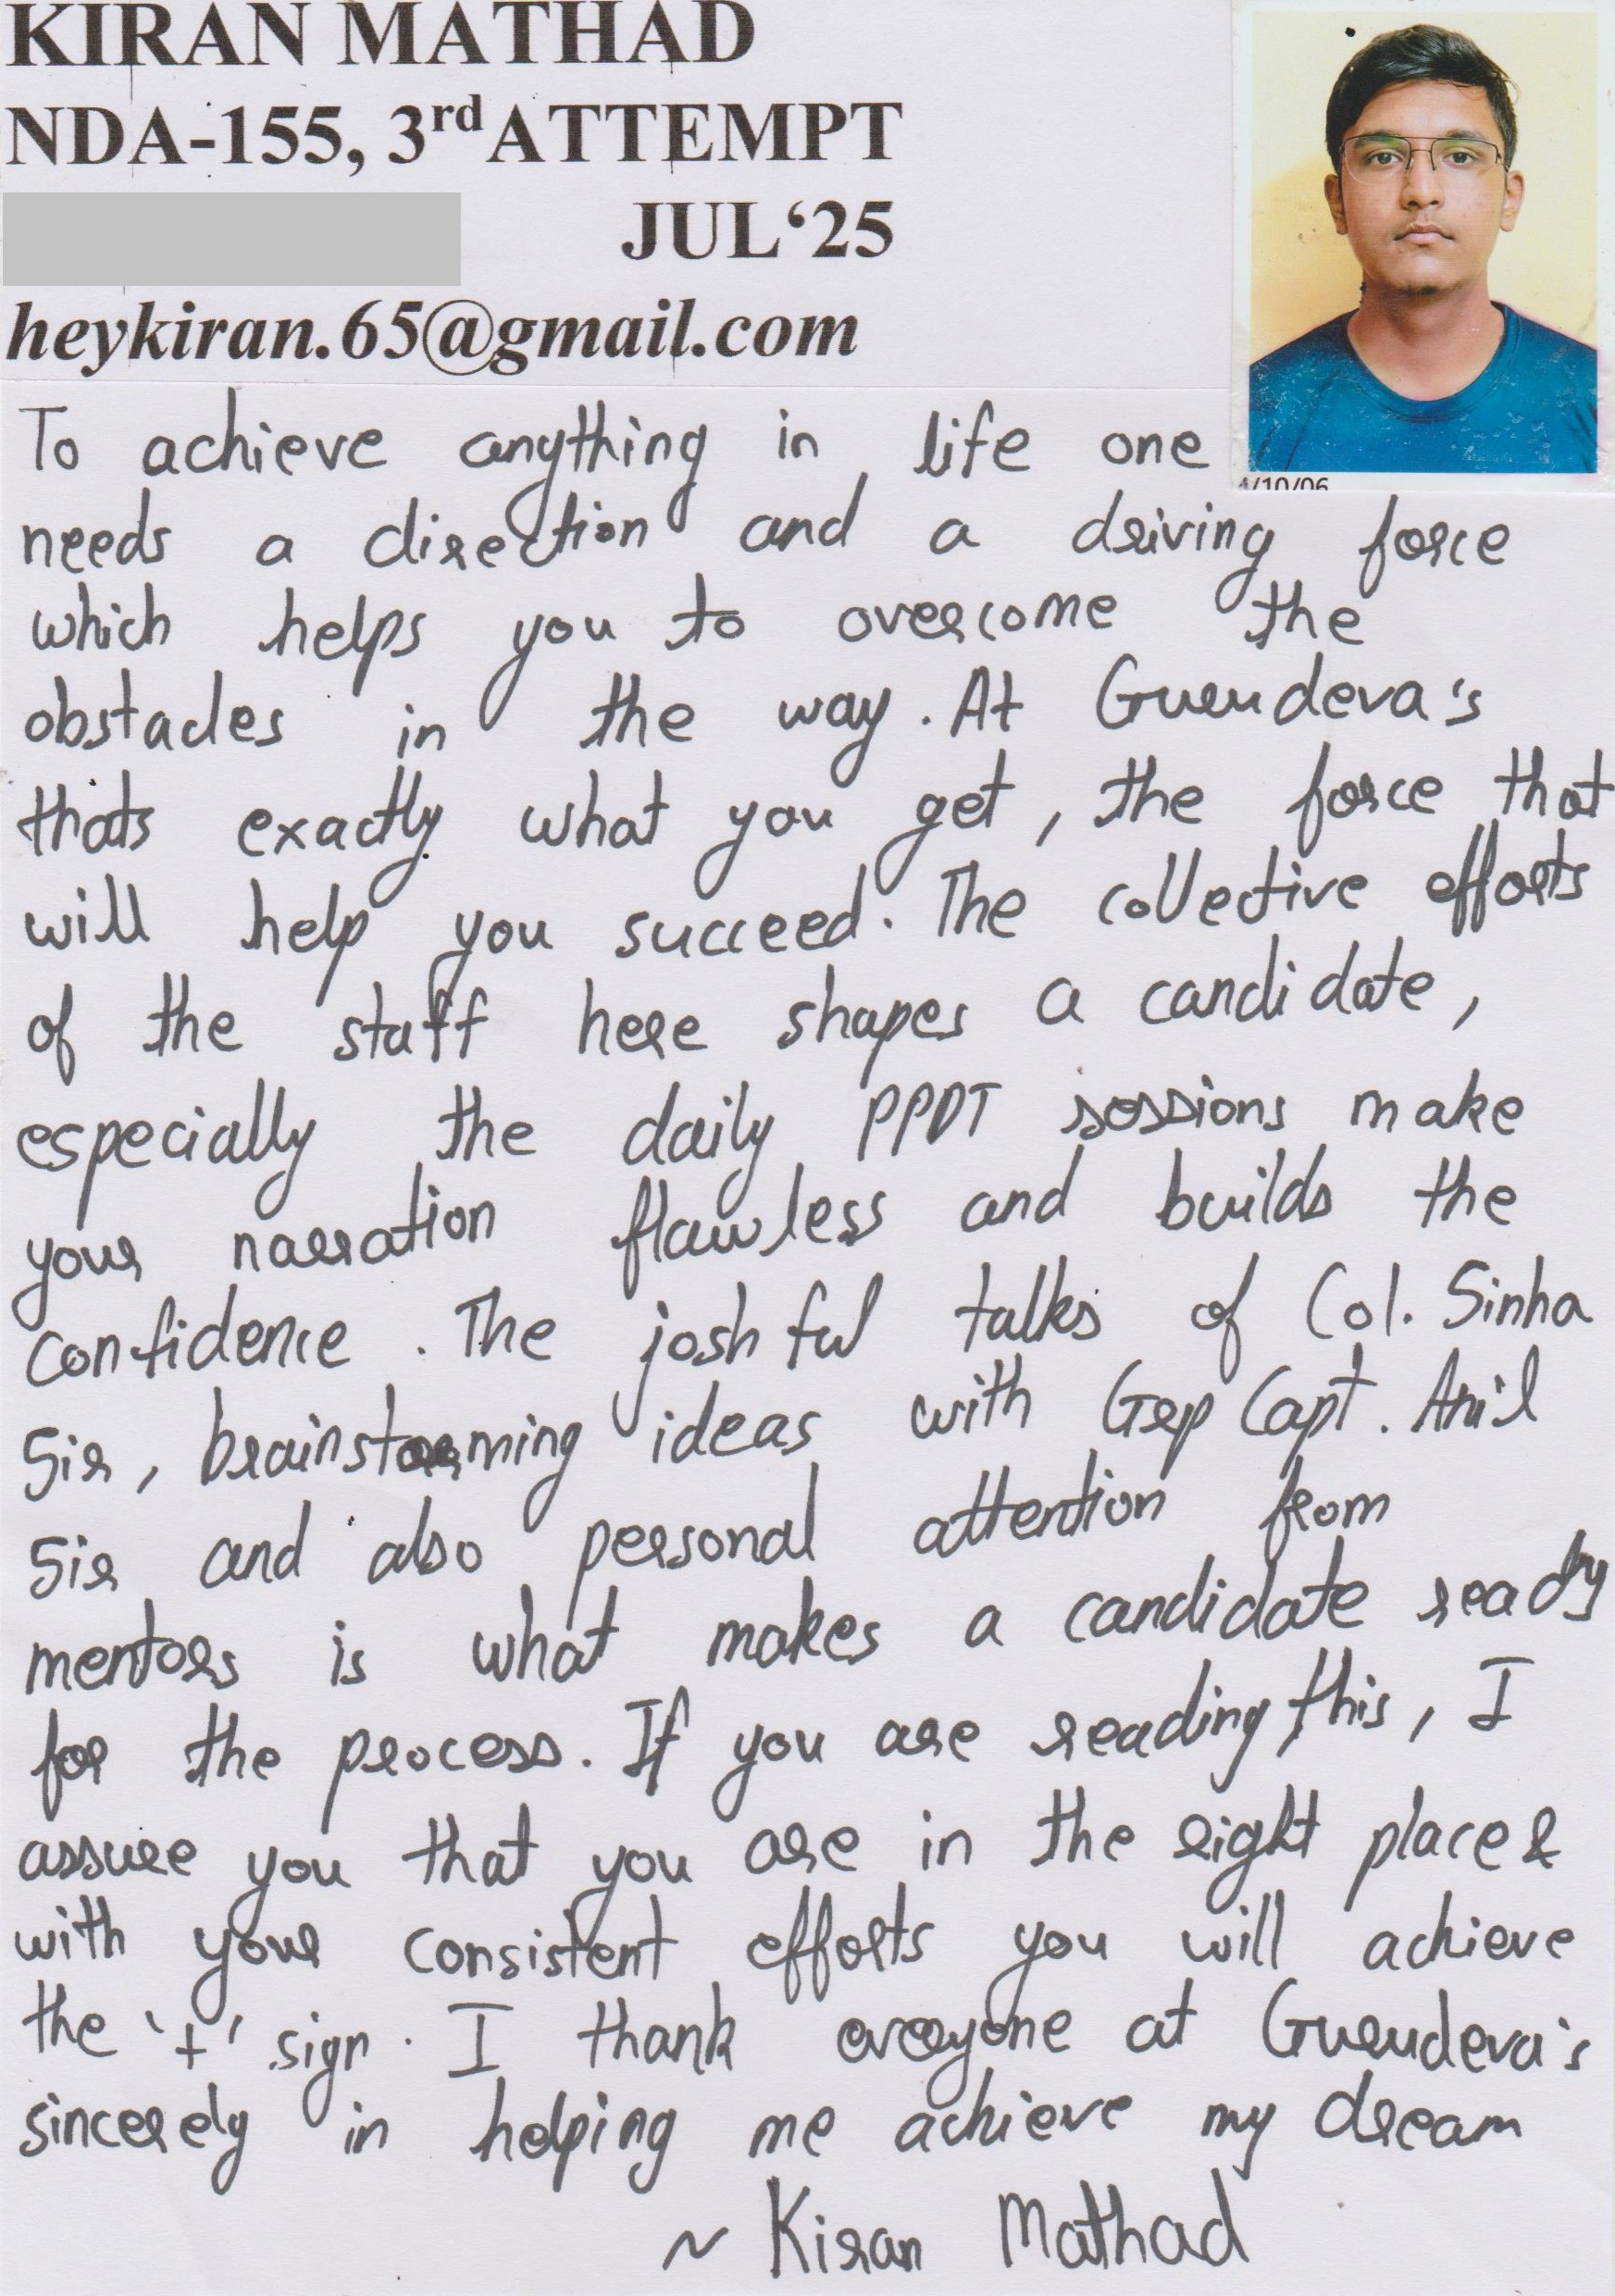 KIRAN MATHAD
NDA-155, 3rd ATTEMPT
JUL‘25
heykiran.65@gmail.com
4/10/06
To achieve anything in life one
needs a direction and a driving force
which helps you to overcome the
obstacles in the way. At Gurudeva's
thats exactly what you get, the force that
will help you succeed. The collective efforts
of the staff here shapes a candidate,
especially the daily PPDT sessions make
your narration flawless and builds the
confidence. The joshful talks of Col. Sinha
Sir, brainstorming ideas with Grp Capt. Anil
Sir and also personal attention from
mentors is what makes a candidate ready
for the process. If you are reading this, I
assure you that you are in the right place &
with your consistent efforts you will achieve
the '+' sign. I thank everyone at Gurudeva's
sincerely in helping me achieve my dream
~ Kiran Mathad